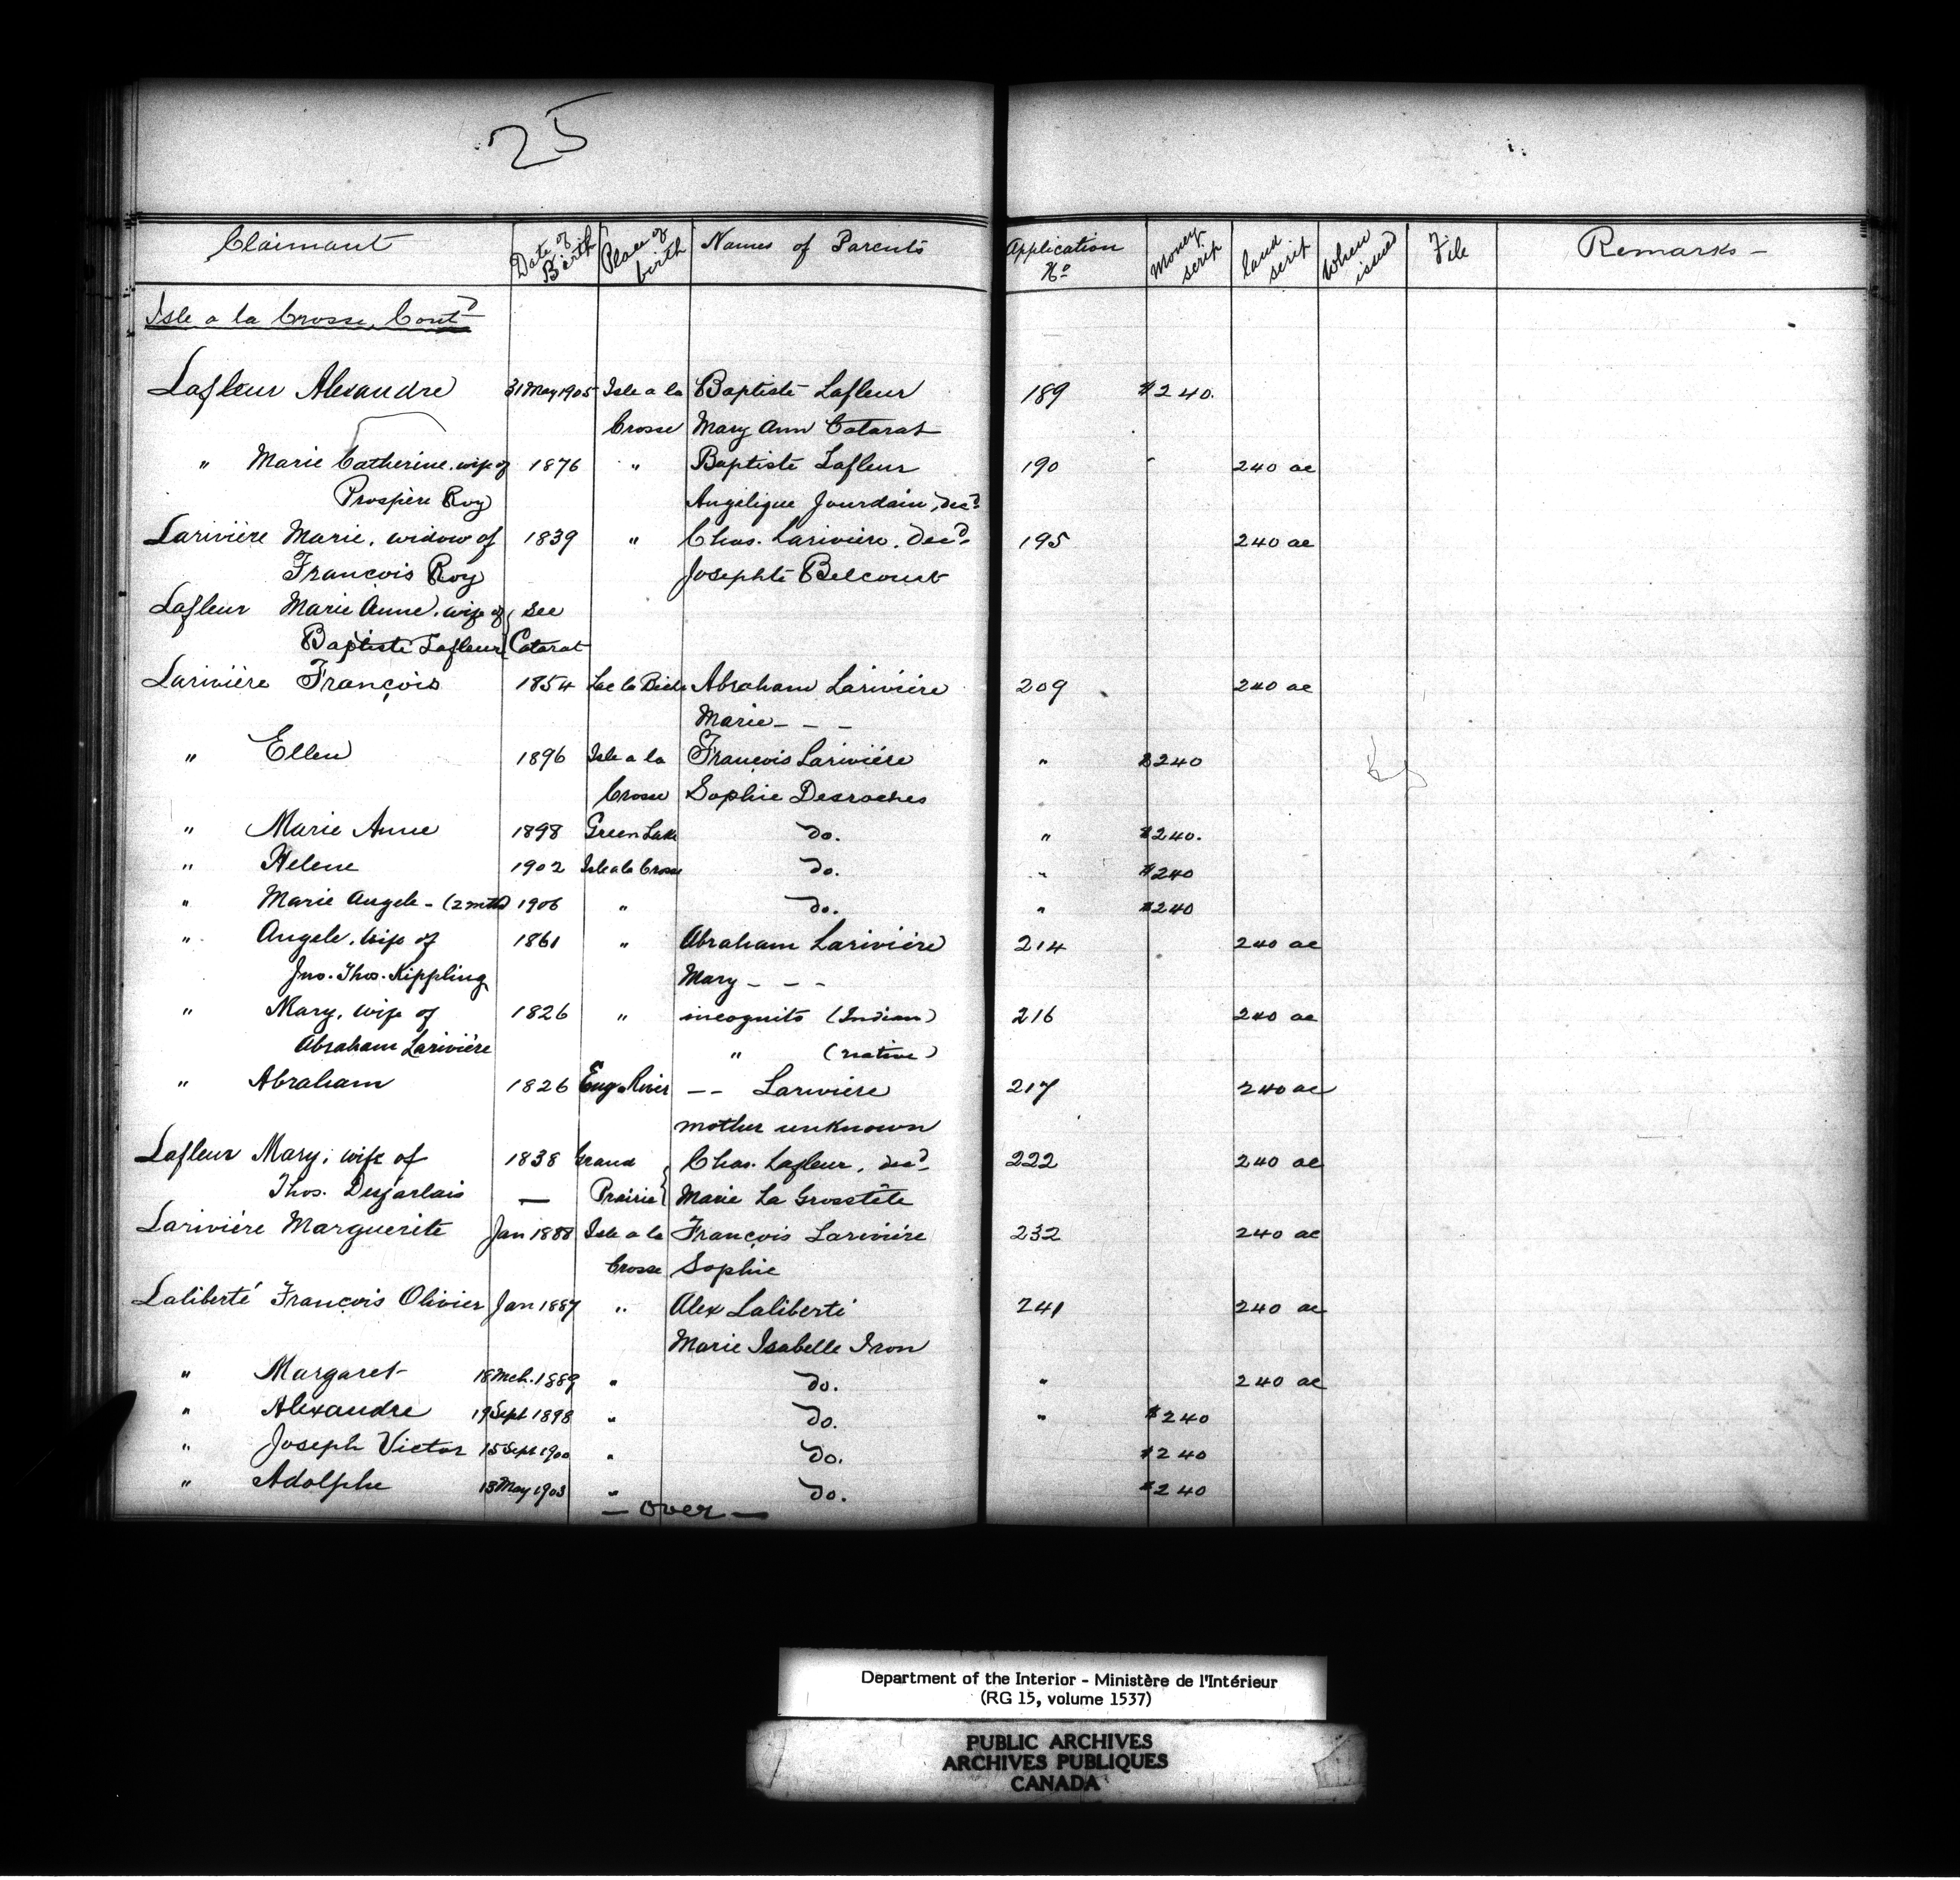 25
Claimant Date of Birth Place of birth Names of Parents Application No Money scrip land scrip When issued File Remarks -
Isle a la Crosse, Contd
Lafleur Alexandre 31 May 1905 Isle a la Baptiste Lafleur 189 $240.
Crosse Mary Ann Catarat
" Marie Catherine. wife of 1876 " Baptiste Lafleur 190 240 ac
Prospère Roy Angelique Jourdain, decd
Larivière Marie. widow of 1839 " Chas. Larivière. Decd 195 240 ac
François Roy Josephte Belcourt
Lafleur Marie Anne. wife of see
Baptiste Lafleur Catarat
Larivière François 1854 Lac la Biche Abraham Larivière 209 240 ac
Marie - - -
" Ellen 1896 Isle a la François Larivière " $240
Crosse Sophie Desroches
" Marie Anne 1898 Green Lake do. " $240.
" Helene 1902 Isle a la Crosse do. " $240
" Marie Angele - (2 mths) 1906 " do. " $240
" Angele. wife of 1861 " Abraham Larivière 214 240 ac
Jno. Thos. Kippling Mary - - -
" Mary, wife of 1826 " incognito (Indian) 216 240 ac
Abraham Larivière " (native)
" Abraham 1826 Eng River - - Lariviere 217 240 ac
mother unknown
Lafleur Mary, wife of 1838 Grand Chas. Lafleur, decd 222 240 ac
Thos. Desjarlais — Prairie Marie La Grosstête
Larivière Marguerite Jan 1888 Isle a la François Larivière 232 240 ac
Crosse Sophie
Laliberté François Olivier Jan 1887 " Alex Laliberté 241 240 ac
Marie Isabelle Iron
" Margaret 18 Mch. 1889 " do. " 240 ac
" Alexandre 19 Sept 1898 " do. " $240
" Joseph Victor 15 Sept 1900 " do. $240
" Adolphe 13 May 1903 " do. $240
- over -
Department of the Interior - Ministère de l'Intérieur
(RG 15, volume 1537)
PUBLIC ARCHIVES
ARCHIVES PUBLIQUES
CANADA